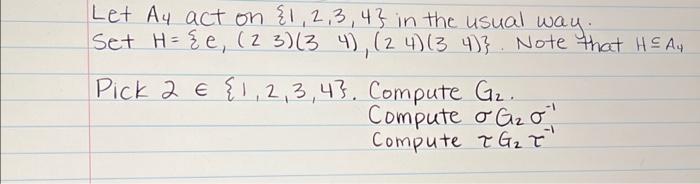 Let A₄ act on {1, 2, 3, 4} in the usual way.
Set H = {e, (2 3)(3 4), (2 4)(3 4)}. Note that H ≤ A₄
Pick 2 ∈ {1, 2, 3, 4}. Compute G₂.
Compute σ G₂ σ⁻¹
Compute τ G₂ τ⁻¹